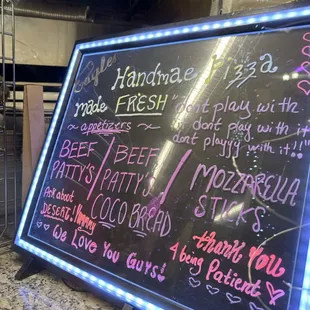 Gayles
Handmade Pizza
made FRESH
"dont play with
it dont play with it
dont playyy with it!!"
~ appetizers ~
BEEF PATTY'S / BEEF PATTY'S COCO BREAD / MOZZARELLA STICKS
Ask about
DESERT!
We Love You Guys!
thank You
4 being Patient